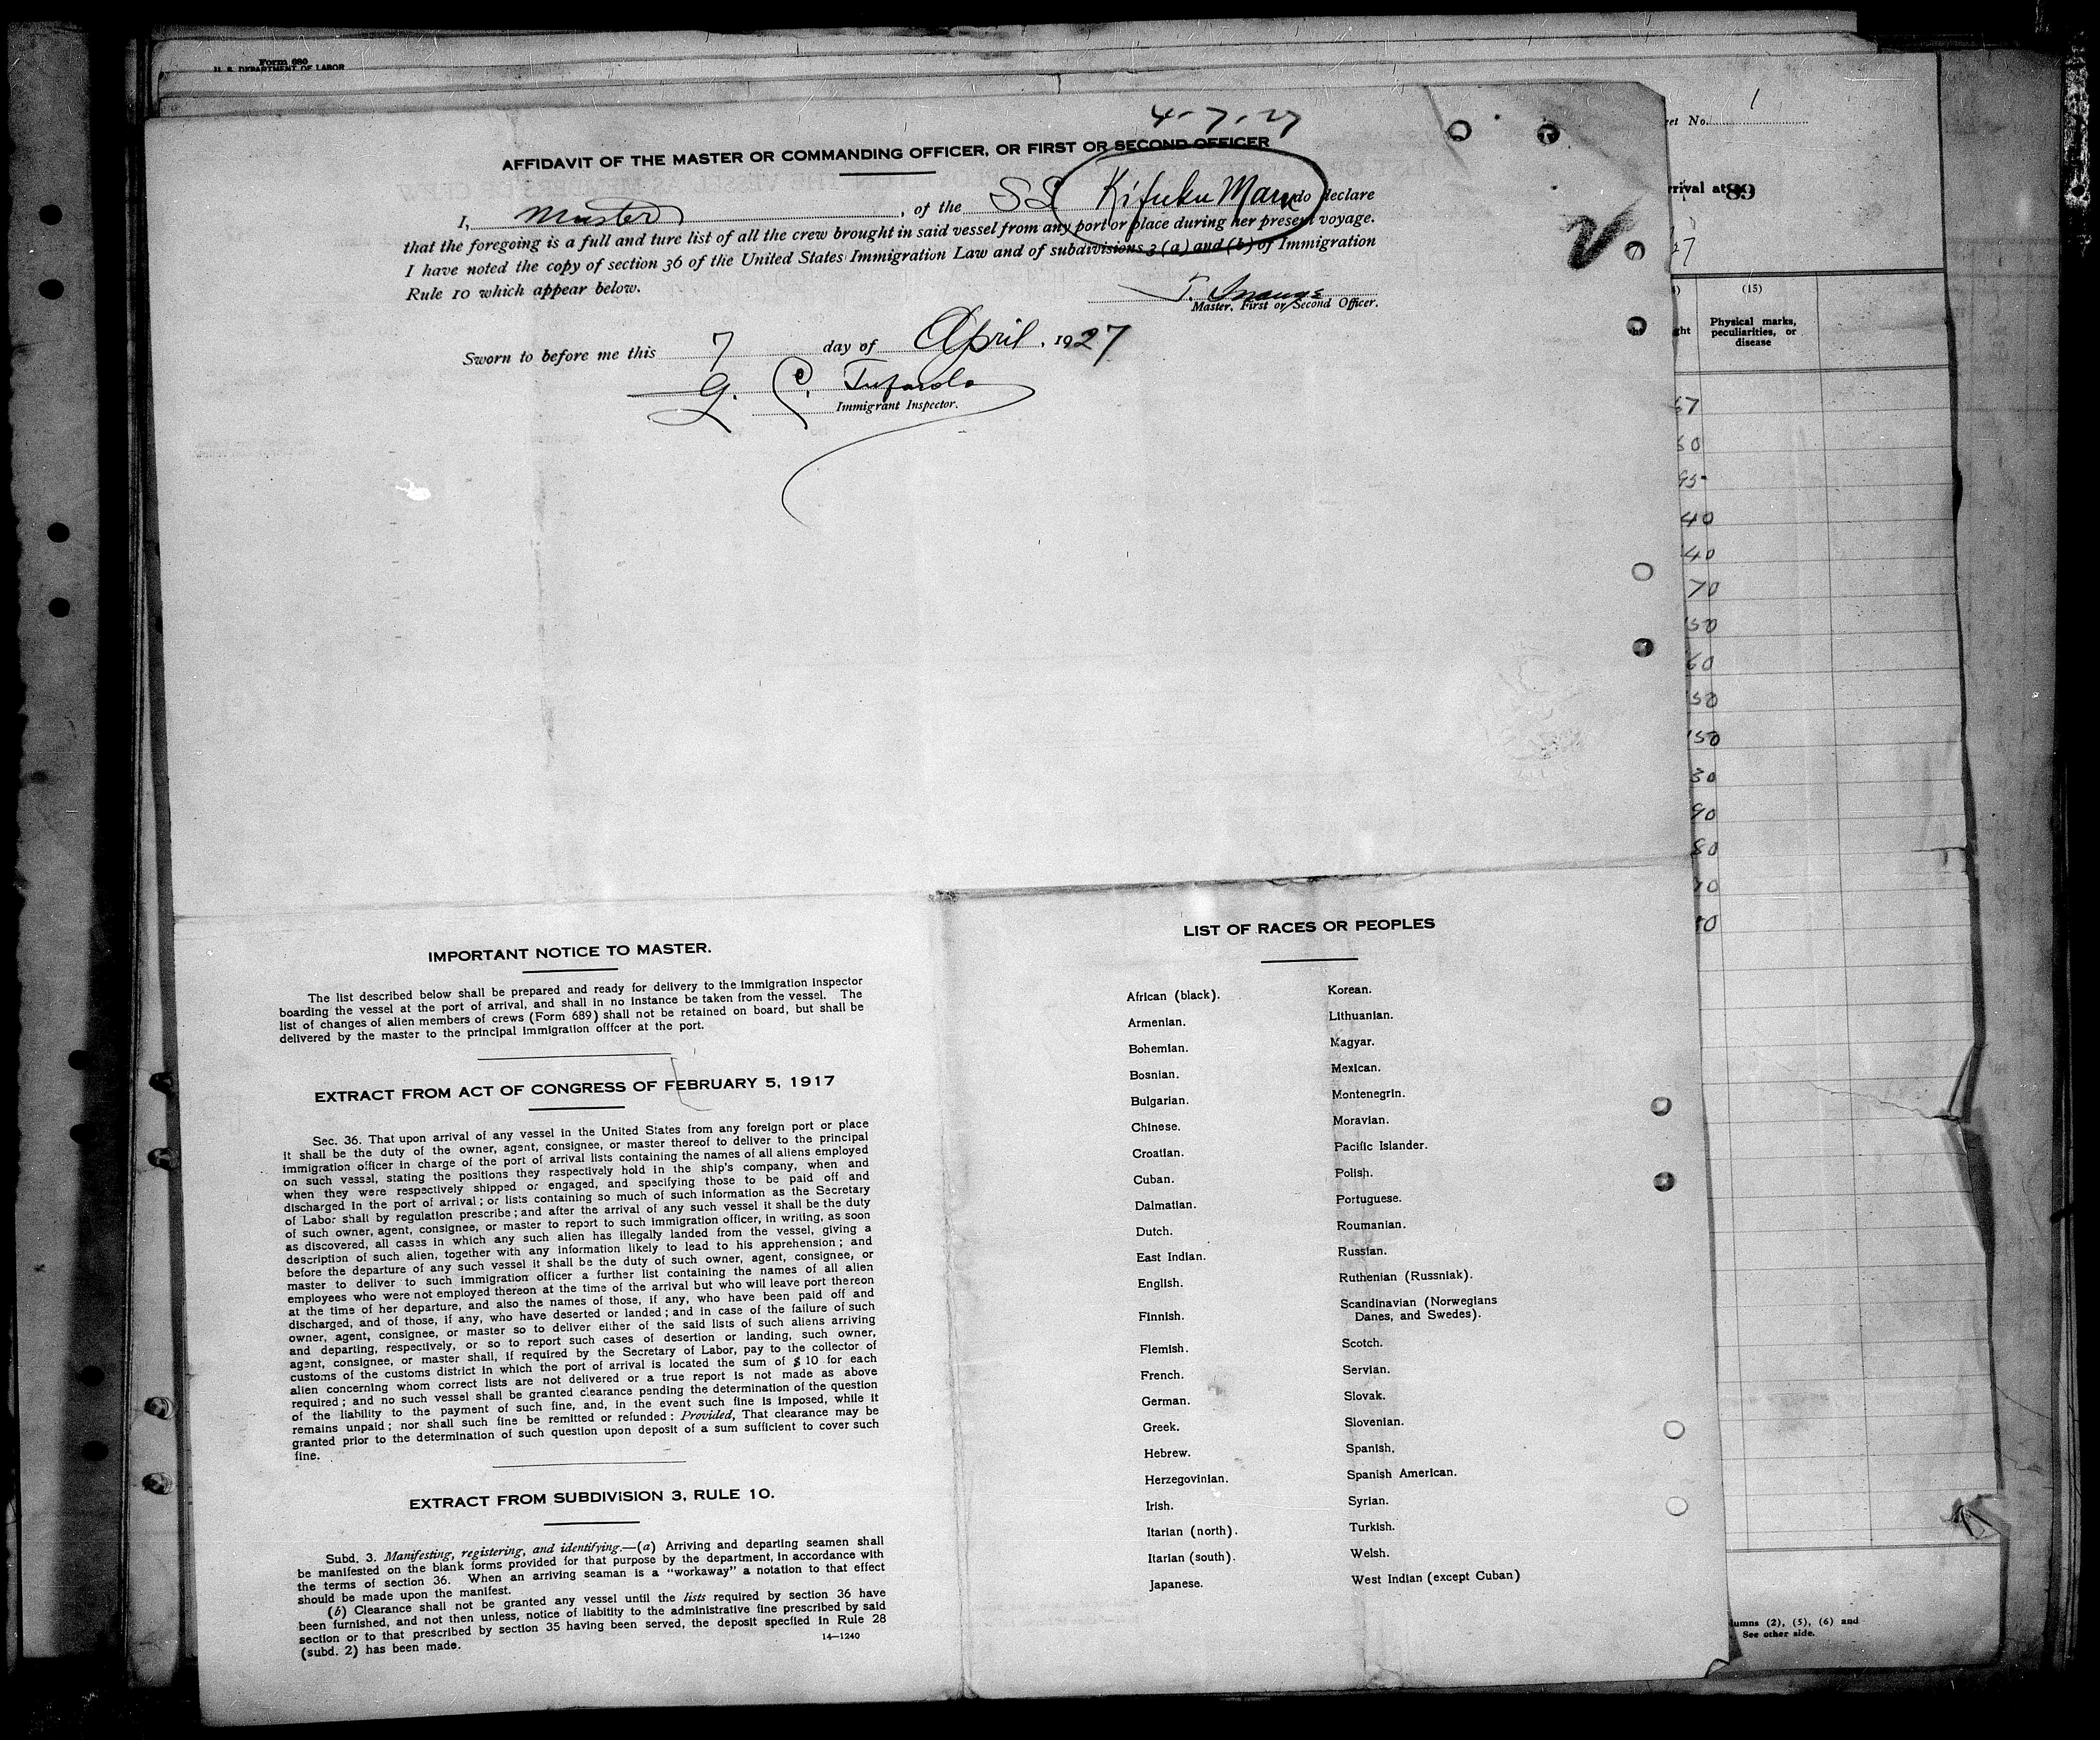 Form 680
U. S. DEPARTMENT OF LABOR
4-7-27
AFFIDAVIT OF THE MASTER OR COMMANDING OFFICER, OR FIRST OR SECOND OFFICER
I, Master, of the SS Kifuku Maru do declare
that the foregoing is a full and ture list of all the crew brought in said vessel from any port or place during her present voyage.
I have noted the copy of section 36 of the United States Immigration Law and of subdivisions 3 (a) and (b) of Immigration
Rule 10 which appear below.
Master, First or Second Officer.
Sworn to before me this 7 day of April, 1927
Immigrant Inspector.
IMPORTANT NOTICE TO MASTER.
The list described below shall be prepared and ready for delivery to the immigration inspector
boarding the vessel at the port of arrival, and shall in no instance be taken from the vessel. The
list of changes of alien members of crews (Form 689) shall not be retained on board, but shall be
delivered by the master to the principal immigration officer at the port.
EXTRACT FROM ACT OF CONGRESS OF FEBRUARY 5, 1917
Sec. 36. That upon arrival of any vessel in the United States from any foreign port or place
it shall be the duty of the owner, agent, consignee, or master thereof to deliver to the principal
immigration officer in charge of the port of arrival lists containing the names of all aliens employed
on such vessel, stating the positions they respectively hold in the ship's company, when and
when they were respectively shipped or engaged, and specifying those to be paid off and
discharged in the port of arrival; or lists containing so much of such information as the Secretary
of Labor shall by regulation prescribe; and after the arrival of any such vessel it shall be the duty
of such owner, agent, consignee, or master to report to such immigration officer, in writing, as soon
as discovered, all cases in which any such alien has illegally landed from the vessel, giving a
description of such alien, together with any information likely to lead to his apprehension; and
before the departure of any such vessel it shall be the duty of such owner, agent, consignee, or
master to deliver to such immigration officer a further list containing the names of all alien
employees who were not employed thereon at the time of the arrival but who will leave port thereon
at the time of her departure, and also the names of those, if any, who have been paid off and
discharged, and of those, if any, who have deserted or landed; and in case of the failure of such
owner, agent, consignee, or master so to deliver either of the said lists of such aliens arriving
and departing, respectively, or so to report such cases of desertion or landing, such owner,
agent, consignee, or master shall, if required by the Secretary of Labor, pay to the collector of
customs of the customs district in which the port of arrival is located the sum of $10 for each
alien concerning whom correct lists are not delivered or a true report is not made as above
required; and no such vessel shall be granted clearance pending the determination of the question
of the liability to the payment of such fine, and, in the event such fine is imposed, while it
remains unpaid; nor shall such fine be remitted or refunded: Provided, That clearance may be
granted prior to the determination of such question upon deposit of a sum sufficient to cover such
fine.
EXTRACT FROM SUBDIVISION 3, RULE 10.
Subd. 3. Manifesting, registering, and identifying.—(a) Arriving and departing seamen shall
be manifested on the blank forms provided for that purpose by the department, in accordance with
the terms of section 36. When an arriving seaman is a "workaway" a notation to that effect
should be made upon the manifest.
(b) Clearance shall not be granted any vessel until the lists required by section 36 have
been furnished, and not then unless, notice of liabitity to the administrative fine prescribed by said
section or to that prescribed by section 35 having been served, the deposit specfied in Rule 28
(subd. 2) has been made.
14—1240
LIST OF RACES OR PEOPLES
African (black).
Armenian.
Bohemian.
Bosnian.
Bulgarian.
Chinese.
Croatian.
Cuban.
Dalmatian.
Dutch.
East Indian.
English.
Finnish.
Flemish.
French.
German.
Greek.
Hebrew.
Herzegovinian.
Irish.
Itarian (north).
Itarian (south).
Japanese.
Korean.
Lithuanian.
Magyar.
Mexican.
Montenegrin.
Moravian.
Pacific Islander.
Polish.
Portuguese.
Roumanian.
Russian.
Ruthenian (Russniak).
Scandinavian (Norwegians
Danes, and Swedes).
Scotch.
Servian.
Slovak.
Slovenian.
Spanish.
Spanish American.
Syrian.
Turkish.
Welsh.
West Indian (except Cuban)
No. 1
at 89
27
(15)
Physical marks,
peculiarities, or
disease
40
40
70
50
60
50
50
30
90
80
(2), (5), (6) and
See other side.